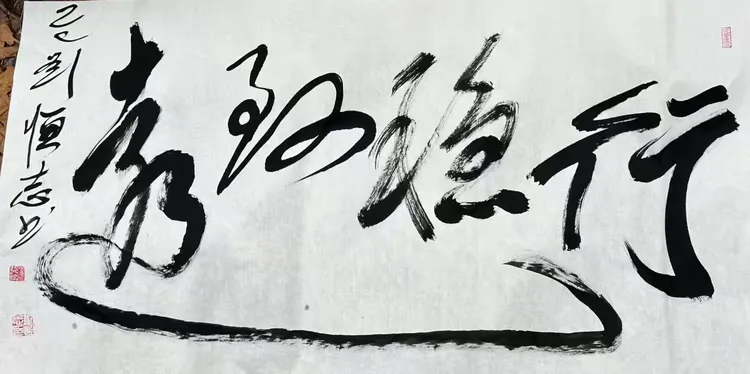 行稳致远
乙巳刘恒志书